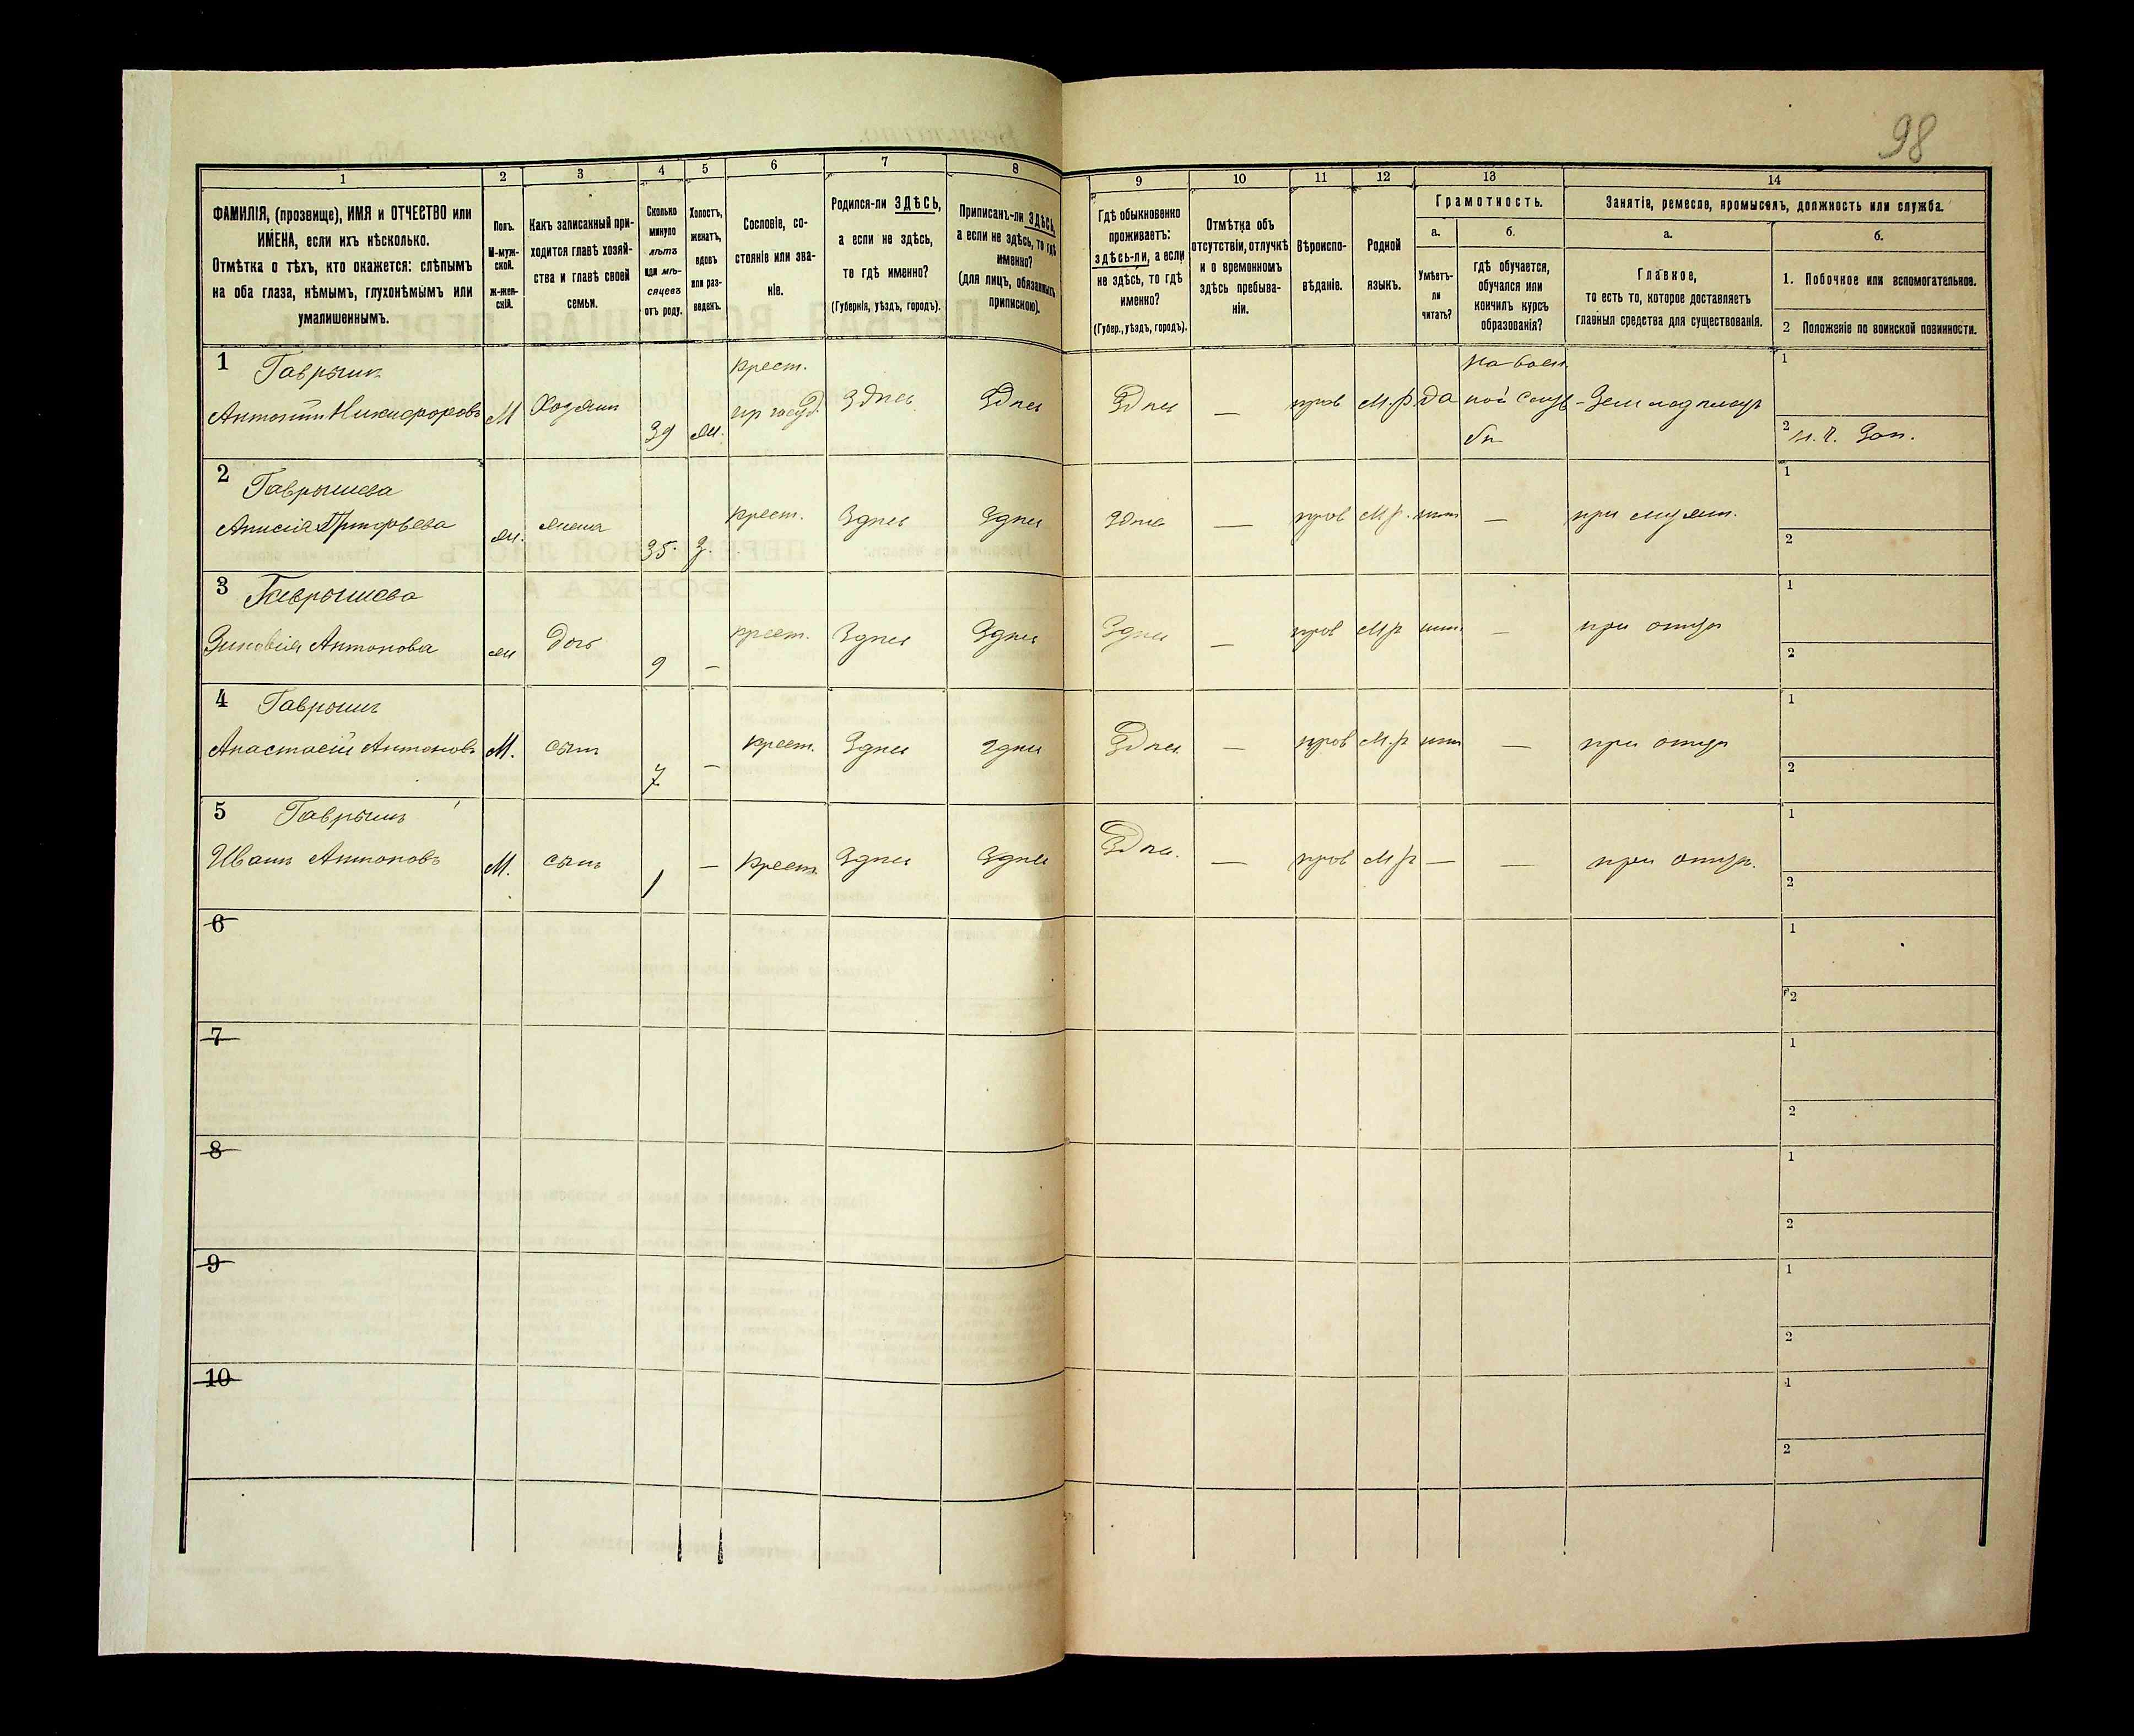 98
1 2 3 4 5 6 7 8 9 10 11 12 13 14
ФАМИЛІЯ, (прозвище), ИМЯ и ОТЧЕСТВО или
ИМЕНА, если ихъ нѣсколько.
Отмѣтка о тѣхъ, кто окажется: слѣпымъ
на оба глаза, нѣмымъ, глухонѣмымъ или
умалишеннымъ.
Полъ.
М-муж-
ской.
ж-жен-
скій.
Какъ записанный при-
ходится главѣ хозяй-
ства и главѣ своей
семьи.
Сколько
минуло
лѣтъ
или мѣ-
сяцевъ
отъ роду.
Холостъ,
женатъ,
вдовъ
или раз-
веденъ.
Сословіе, со-
стояніе или зва-
ніе.
Родился-ли ЗДѢСЬ,
а если не здѣсь,
то гдѣ именно?
(Губернія, уѣздъ, городъ).
Приписанъ-ли ЗДѢСЬ,
а если не здѣсь, то гдѣ
именно?
(для лицъ, обязанныхъ
припискою).
Гдѣ обыкновенно
проживаетъ:
здѣсь-ли, а если
не здѣсь, то гдѣ
именно?
(Губер., уѣздъ, городъ).
Отмѣтка объ
отсутствіи, отлучкѣ
и о временномъ
здѣсь пребыва-
ніи.
Вѣроиспо-
вѣданіе.
Родной
языкъ.
Грамотность.
а.
Умѣетъ-
ли
читать?
б.
гдѣ обучается,
обучался или
кончилъ курсъ
образованія?
Занятіе, ремесло, промыселъ, должность или служба.
а.
Главное,
то есть то, которое доставляетъ
главныя средства для существованія.
б.
1. Побочное или вспомогательное.
2 Положеніе по воинской повинности.
1 Гаврышъ крест. На воен. 1
Антонъ Никифоровъ М Хозяин 39 ж. Здѣсь Здѣсь Здѣсь — прав М.р. да 2
2 Гаврышева 1
Анисія ж. жена 35. З. крест. Здѣсь Здѣсь Здѣсь — прав М.р. нет — при мужѣ. 2
3 Гаврышева 1
Зиновія Антонова ж дочь 9 — крест. Здѣсь Здѣсь Здѣсь — прав М.р нет — при отцѣ 2
4 Гаврышъ 1
Анастасій Антоновъ М. сынъ 7 — крест. Здѣсь Здѣсь Здѣсь — прав М.р нет — при отцѣ 2
5 Гаврышъ 1
Иванъ Антоновъ М. сынъ 1 — крест. Здѣсь Здѣсь Здѣсь. — прав М.р — — при отцѣ. 2
6 1
2
7 1
2
8 1
2
9 1
2
10 1
2